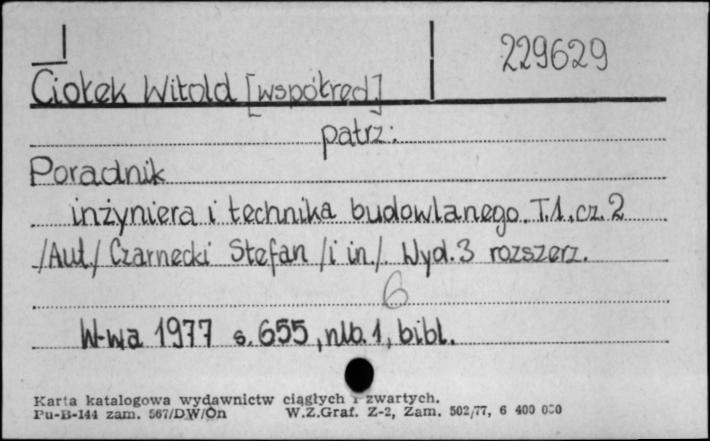 229629
Ciołek Witold [współred]
patrz:
Poradnik
inżyniera i technika budowlanego. T.1. cz. 2
/Aut/ Czarnecki Stefan /i in./. Wyd. 3 rozszerz.
6
W-wa 1977 s. 655, nlb. 1, bibl.
Karta katalogowa wydawnictw ciągłych i zwartych.
Pu-B-144 zam. 567/DW/On W.Z.Graf. Z-2, Zam. 502/77, 6 400 000